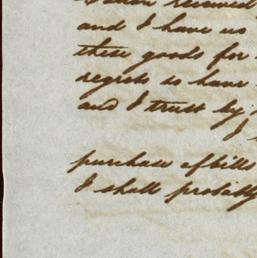 received
and I have us
these goods for
regrets to have
and I trust by
I
purchase of bills
I shall probably